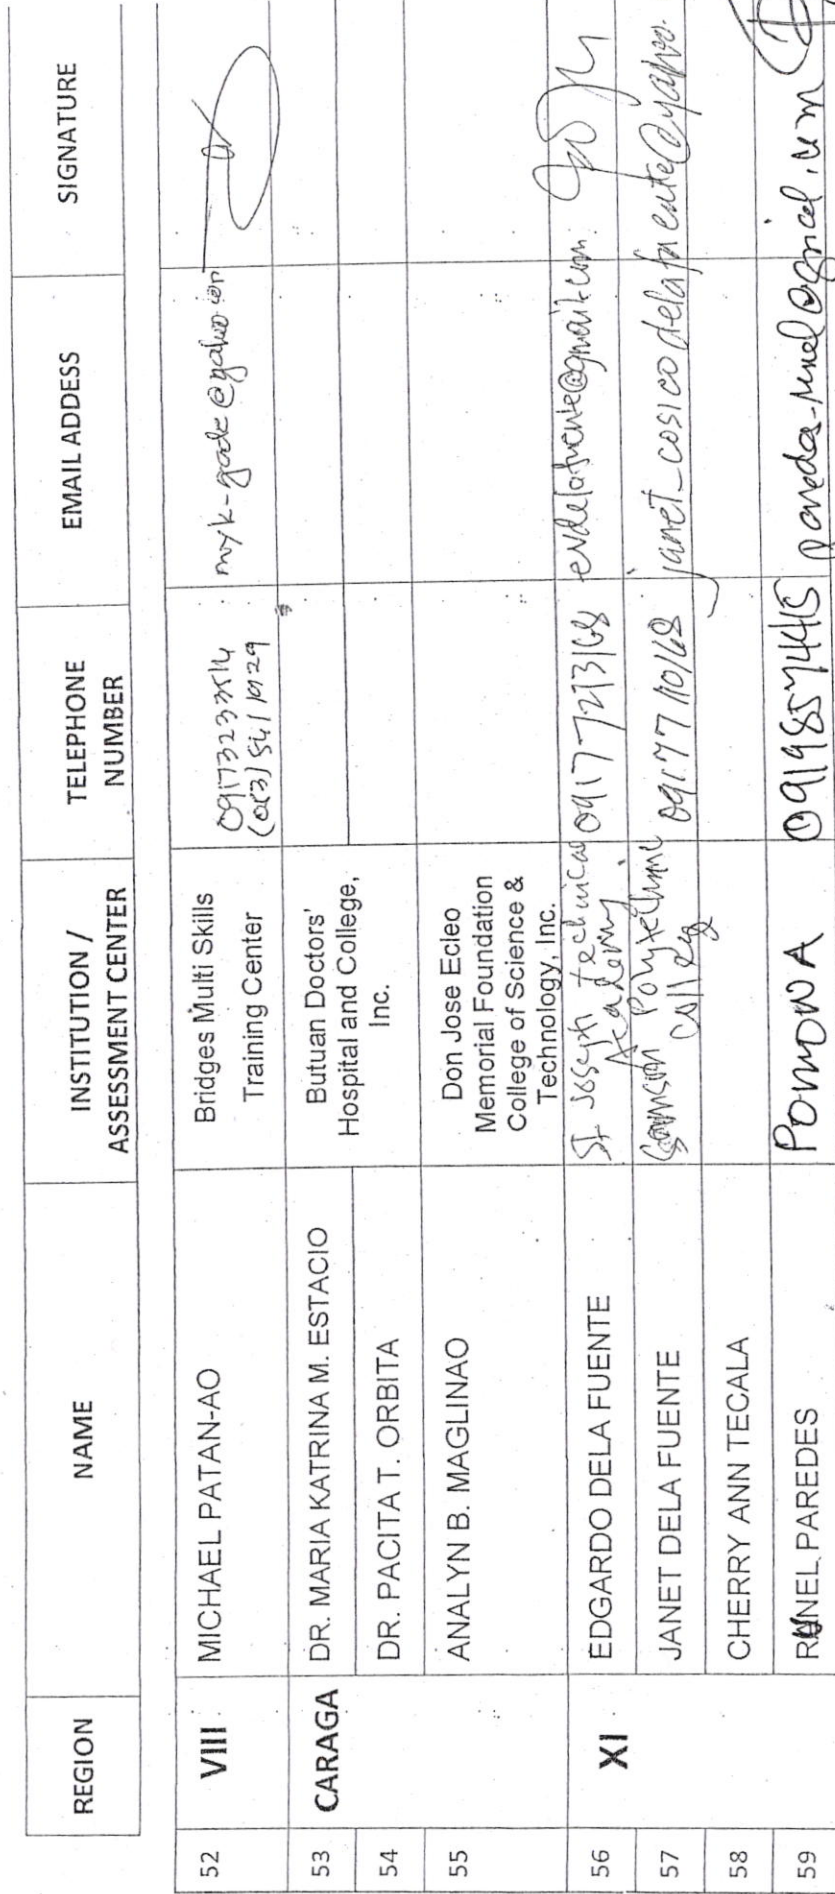 REGION NAME INSTITUTION / ASSESSMENT CENTER TELEPHONE NUMBER EMAIL ADDESS SIGNATURE
52 VIII MICHAEL PATAN-AO Bridges Multi Skills Training Center
53 CARAGA DR. MARIA KATRINA M. ESTACIO Butuan Doctors' Hospital and College, Inc.
54 DR. PACITA T. ORBITA
55 ANALYN B. MAGLINAO Don Jose Ecleo Memorial Foundation College of Science & Technology, Inc.
56 XI EDGARDO DELA FUENTE St Joseph technical Academy 09177273168 evdelafuente@gmail.com
57 JANET DELA FUENTE Samson Polytechnic College 0917710168 janet_cosicodelafuente@yahoo.
58 CHERRY ANN TECALA
59 PAREDES 09198574415